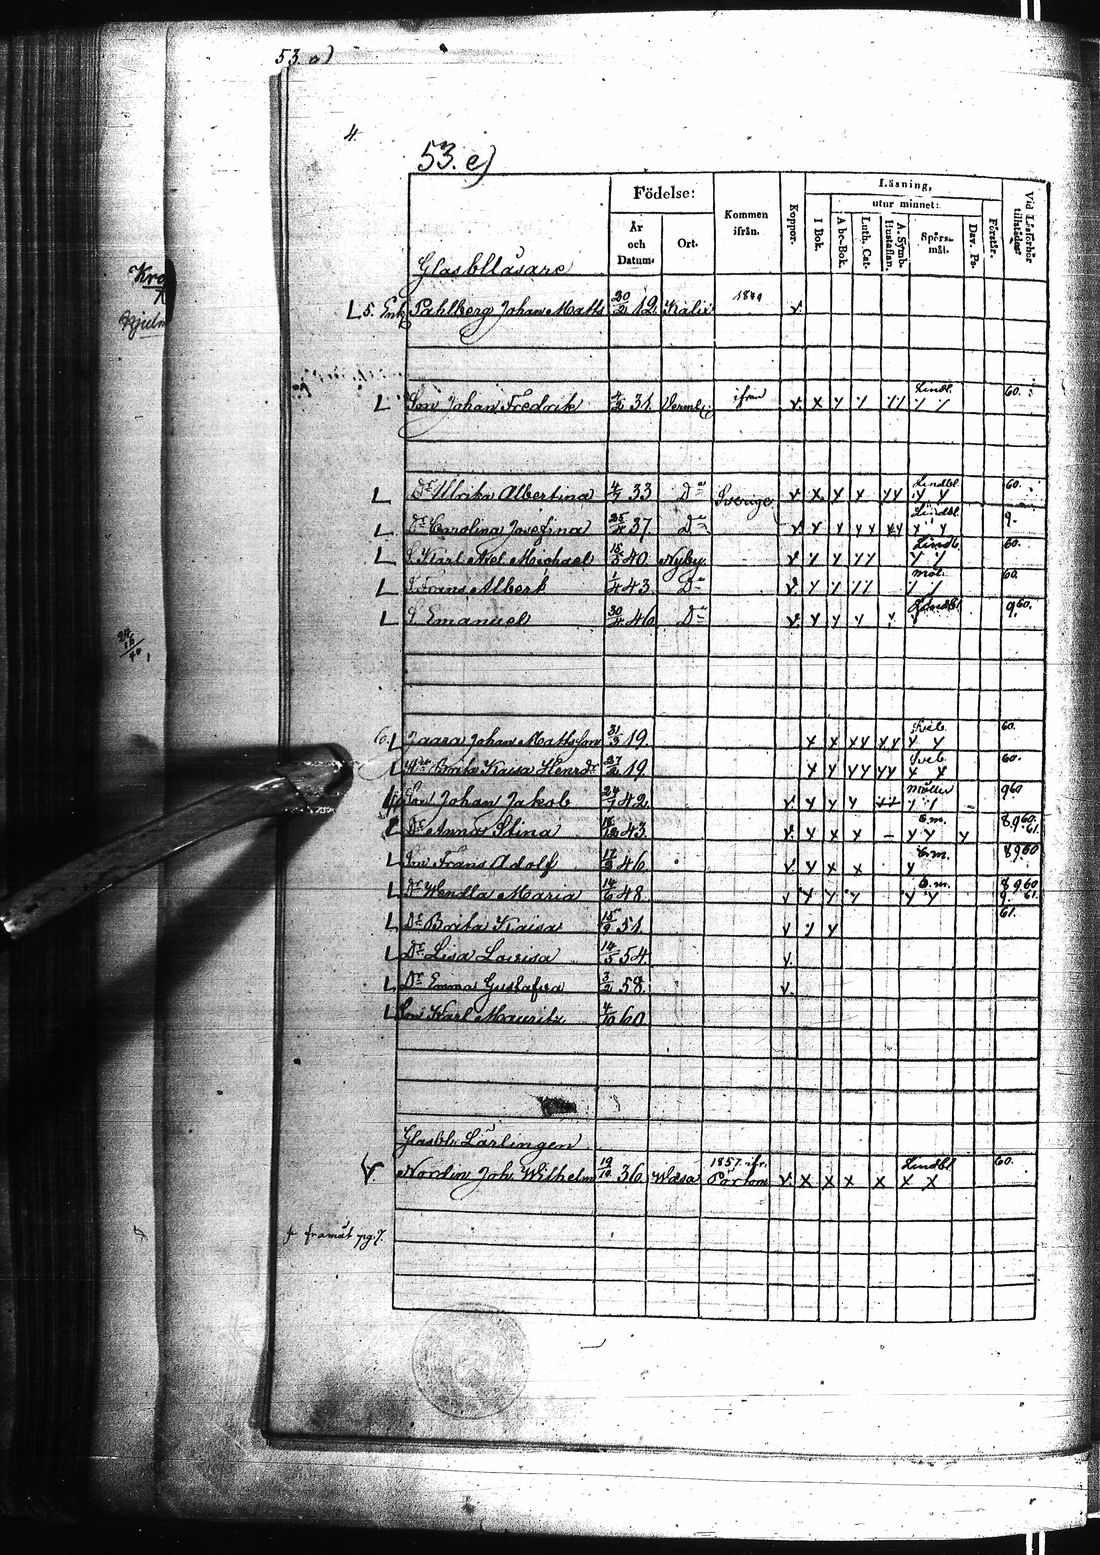 53. a)
4.
53. e)
Födelse:
År och Datum.
Ort.
Kommen ifrån.
Koppor.
Läsning,
utur minnet:
I Bok.
A bc-Bok.
Luth. Cat.
A. Symb. Hustaflan.
Spörs-mål.
Dav. Ps.
Förstår.
Vid Läsförhör tillstädes
Glasblläsare
L 5. Enk. Pahlberg Johan Matts 20/2 12. Kalix 1849 v.
L Son Johan Fredrik 4/2 31. Verml. ifrån v. x y / // Lindbl. // 60.
L Dr Ulrika Albertina 4/7 33 Do Sverige v x y x yy Lindbl. y y 60.
L Dr Carolina Josefina 25/4 37. Do v y y yy yy Lindbl. 9.
L S. Karl Axel Michael 18/3 40. Nyby. v / / // Lindb. // 60.
L S Frans Albert 1/4 43. Do v / / // Möl. // 60.
L S Emanuel 30/4 46 Do v y y y Lindbl. 9 60.
6. L Jaara Johan Mattsson 31/3 19. x x yy yy Sveb. y y 60.
L Hu Brita Kaisa Henrdr 27/2 19. y y yy yy Sveb. x x 60.
Son Johan Jakob 24/7 42. v y y y Möller // 9 60
L Dr Anna Stina 18/12 43. v y x x – E.m. y y y 8.9 60. 61.
L Son Frans Adolf 17/3 46. v y x x E.m. y 8 9 60
L Dr Wendla Maria 14/6 48. v y y y E.m. y y 8 9 60 9. 61.
L Dr Brita Kaisa 15/9 51. v y y 61.
L Dr Lisa Lovisa 14/5 54. v.
L Dr Emma Gustafva 3/2 58. v.
L Son Karl Mauritz 4/10 60.
Glasbl. Lärlingen
v Nordin Joh. Wilhelm 19/10 36. Wasa 1857 ifr. Pörtom v. x x x x Lindbl x x 60.
framåt pg. 7.